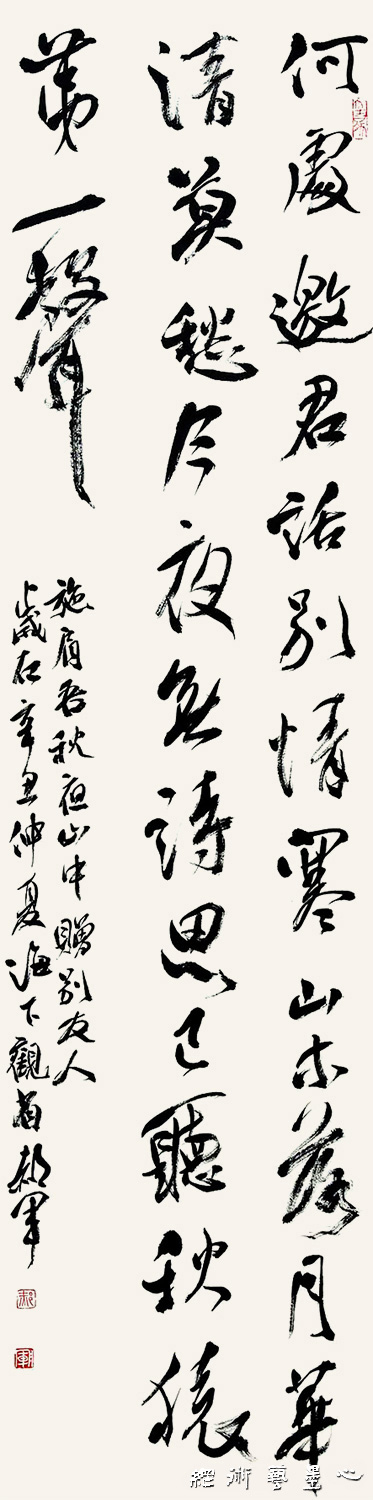 何處邀君話別情寒山木落月華
清莫愁今夜無詩思已聽秋猿
第一聲
施肩吾秋夜山中贈別友人
歲在辛丑仲夏海下觀郝軍
郝
軍
心墨藝術經